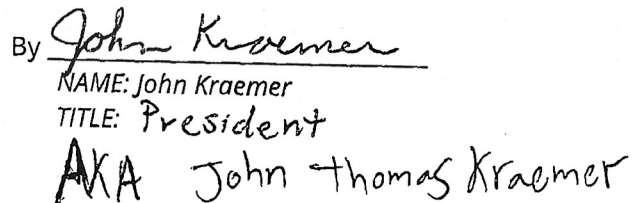 By John Kraemer
NAME: John Kraemer
TITLE: President
AKA John Thomas Kraemer